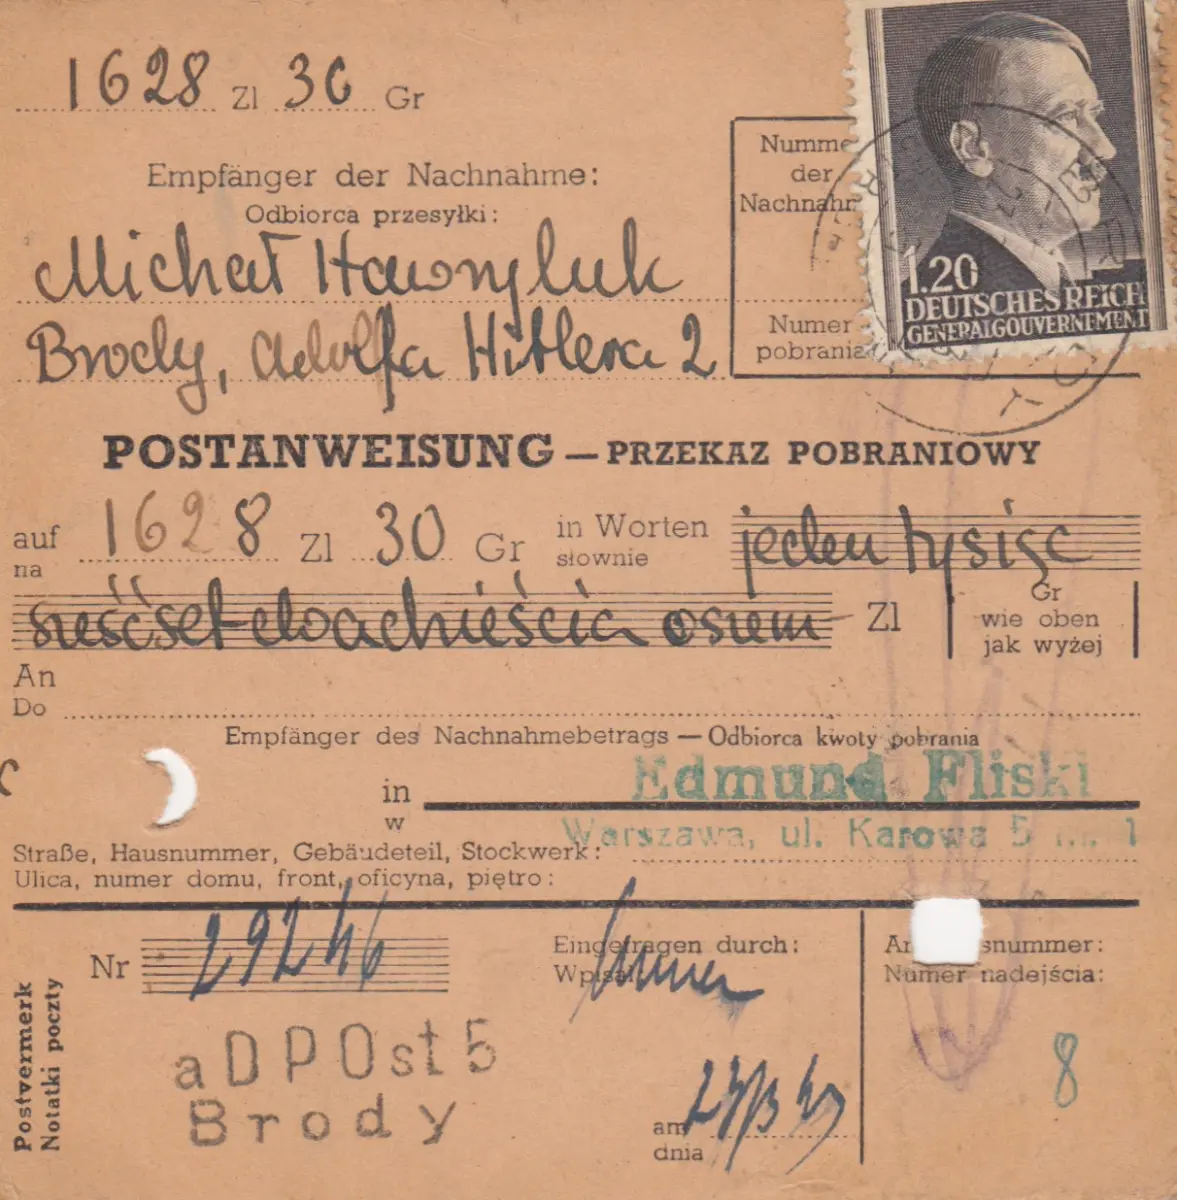 1628 Zl 30 Gr
Empfänger der Nachnahme:
Odbiorca przesyłki:
Michał Hawryluk
Brody, Adolfa Hitlera 2
Numme
der
Nachnahm
Numer
pobrania
1.20
DEUTSCHES REICH
GENERALGOUVERNEMENT
POSTANWEISUNG – PRZEKAZ POBRANIOWY
auf 1628 Zl 30 Gr in Worten jeden tysiąc
na słownie
sześćset dwadzieścia osiem Zl Gr
wie oben
jak wyżej
An
Do
Empfänger des Nachnahmebetrags — Odbiorca kwoty pobrania
Edmund Fliski
in
w
Warszawa, ul. Karowa 5 m. 1
Straße, Hausnummer, Gebäudeteil, Stockwerk:
Ulica, numer domu, front, oficyna, piętro:
Postvermerk
Notatki poczty
Nr 29246
Eingetragen durch:
Wpisał
An snummer:
Numer nadejścia:
8
aDPOst5
Brody
am
dnia